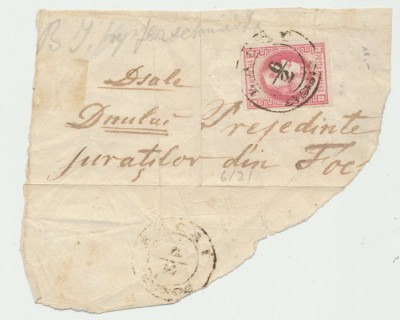 B J. Kupferschmidt
Dsale
Dnului Preşedinte
juraţilor din Foc
6/21